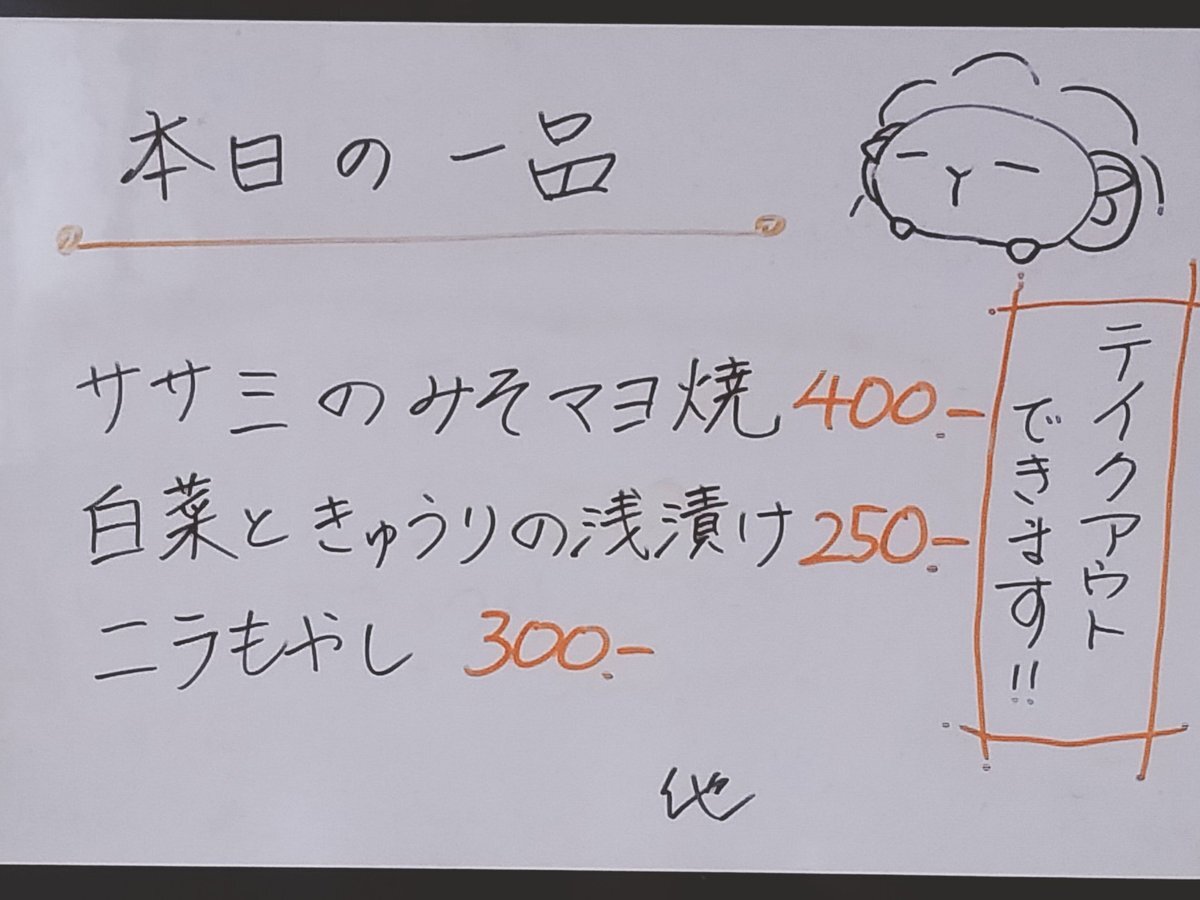 本日の一品
ササミのみそマヨ焼 400.-
白菜ときゅうりの浅漬け 250.-
ニラもやし 300.-
他
テイクアウト
できます!!